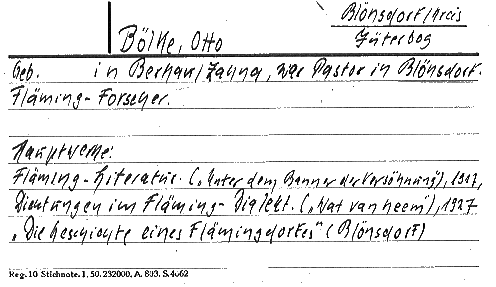 Blönsdorf/Kreis
Jüterbog
Bölke, Otto
Geb. in Berkau/Zahna, war Pastor in Blönsdorf.
Fläming-Forscher.
Hauptwerke:
Fläming-Literatur. („Unter dem Banner der Versöhnung"), 1917,
Dichtungen im Fläming-Dialekt. („Wat van heem"), 1927
„Die Geschichte eines Flämingdorfes" (Blönsdorf)
Reg. 10 Stichnote. 1, 50. 232000. A. 803. S. 4662